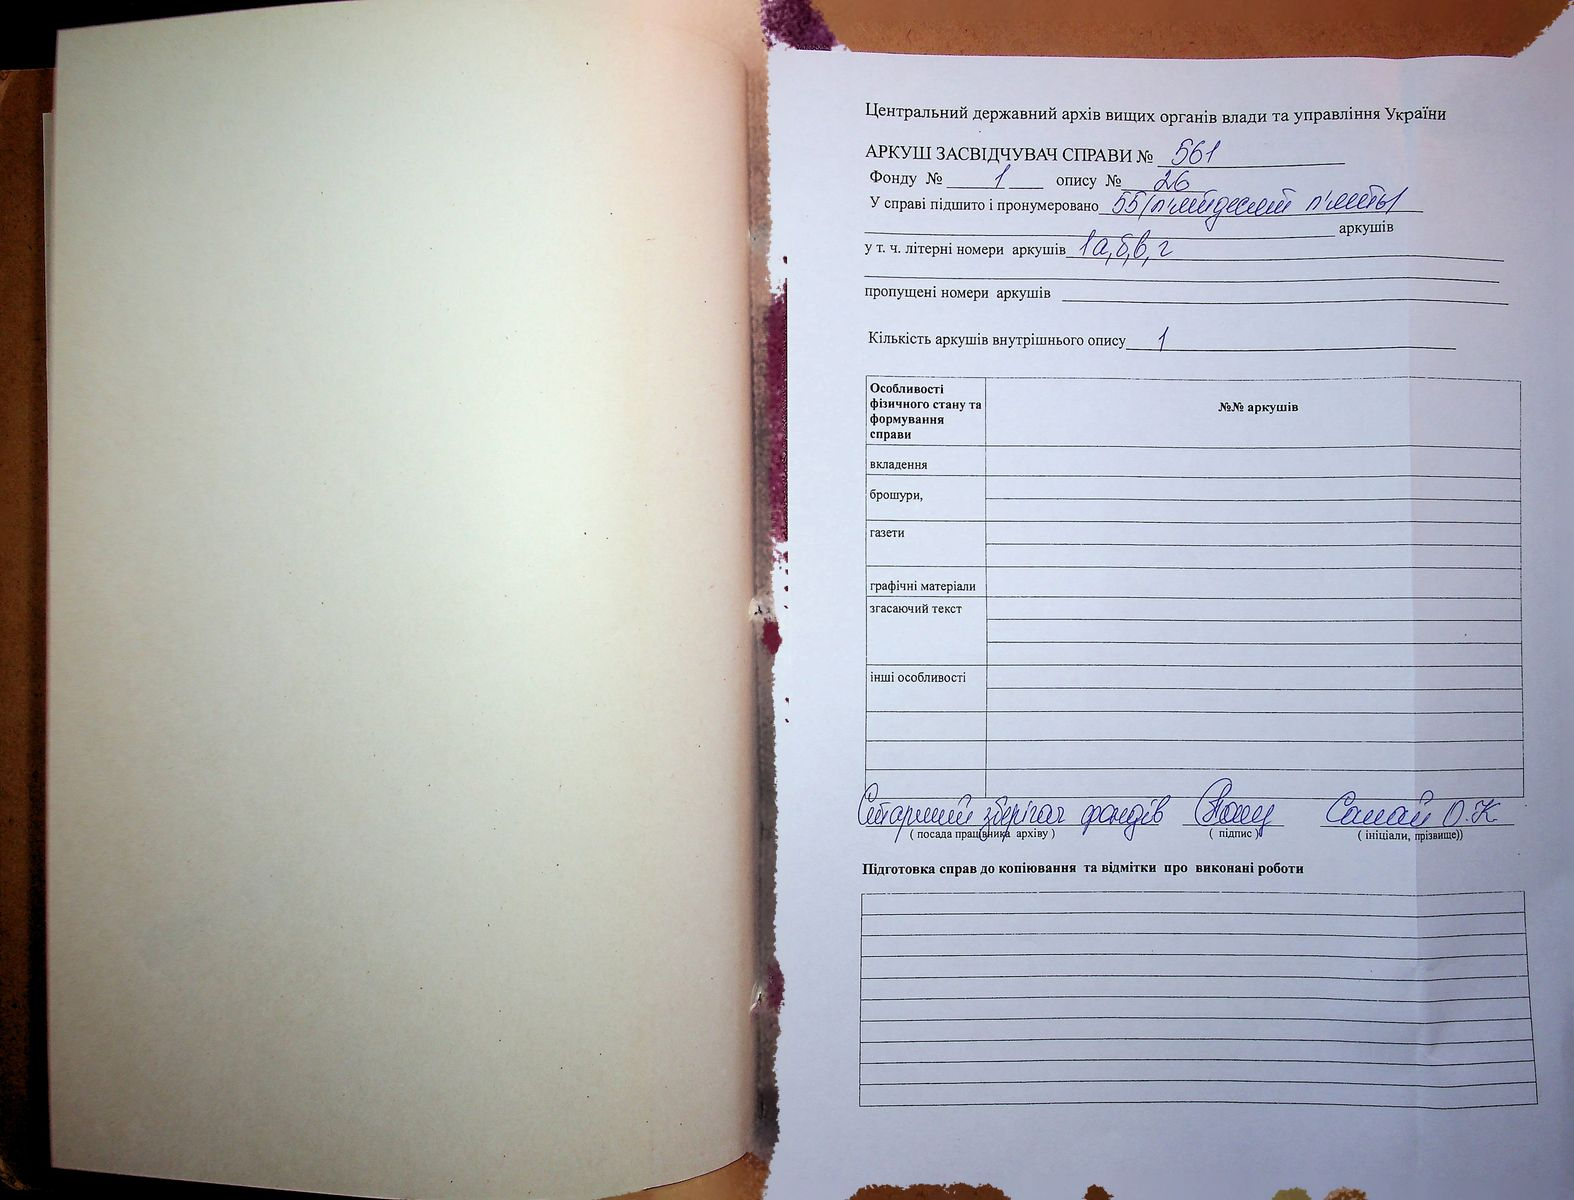 Центральний державний архів вищих органів влади та управління України
АРКУШ ЗАСВІДЧУВАЧ СПРАВИ № 561
Фонду № 1 опису № 26
У справі підшито і пронумеровано 55 /п'ятдесят п'ять/
аркушів
у т. ч. літерні номери аркушів 1а,б,в,г
пропущені номери аркушів
Кількість аркушів внутрішнього опису 1
Особливості фізичного стану та формування справи
№№ аркушів
вкладення
брошури,
газети
графічні матеріали
згасаючий текст
інші особливості
Старший зберігач фондів О.К.
( посада працівника архіву ) ( підпис ) ( ініціали, прізвище))
Підготовка справ до копіювання та відмітки про виконані роботи